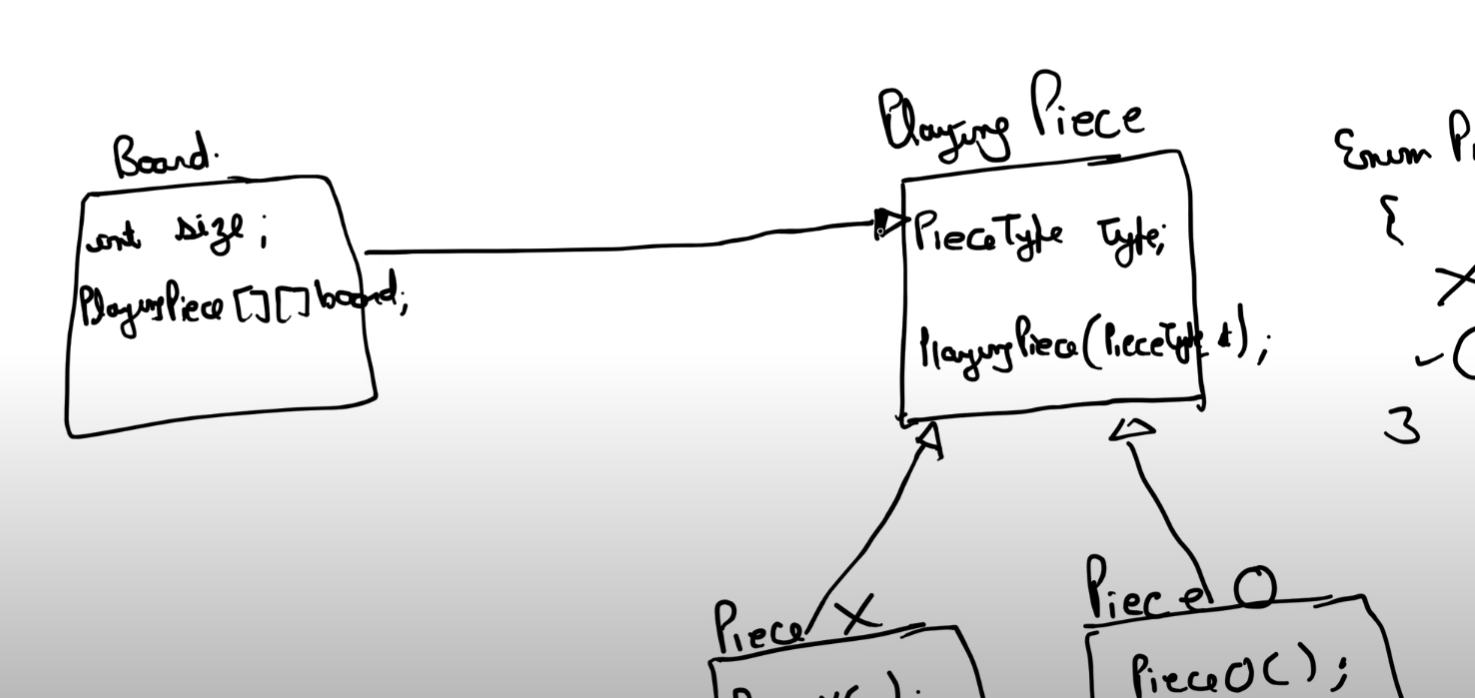 Board.
int size;
PlayingPiece [][] board;
Playing Piece
PieceType Type;
PlayingPiece(PieceType t);
Enum
{
X
O
}
Piece X
Piece O
PieceO();